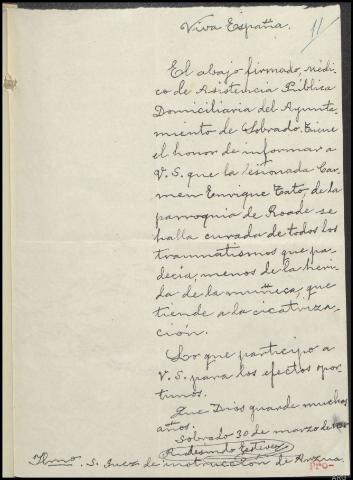 Viva España.
11
El abajo firmado, Médi
co de Asistencia Pública
Domiciliaria del Ayunta-
miento de Sobrado. Tiene
el honor de informar a
V.S. que la lesionada Car
men Enrique Tato, de la
parroquia de Roade se
halla curada de todos los
traumatismos que pa-
decia, menos de la heri-
da de la muñeca, que
tiende a la cicatriza-
ción.
Lo que participo a
V.S. para los efectos opor-
tunos.
Que Dios guarde muchos
años.
Sobrado 30 de marzo de
Audesindo Esteves
Ilmo. S. Juez de instrucción de Arzua.
Pro-